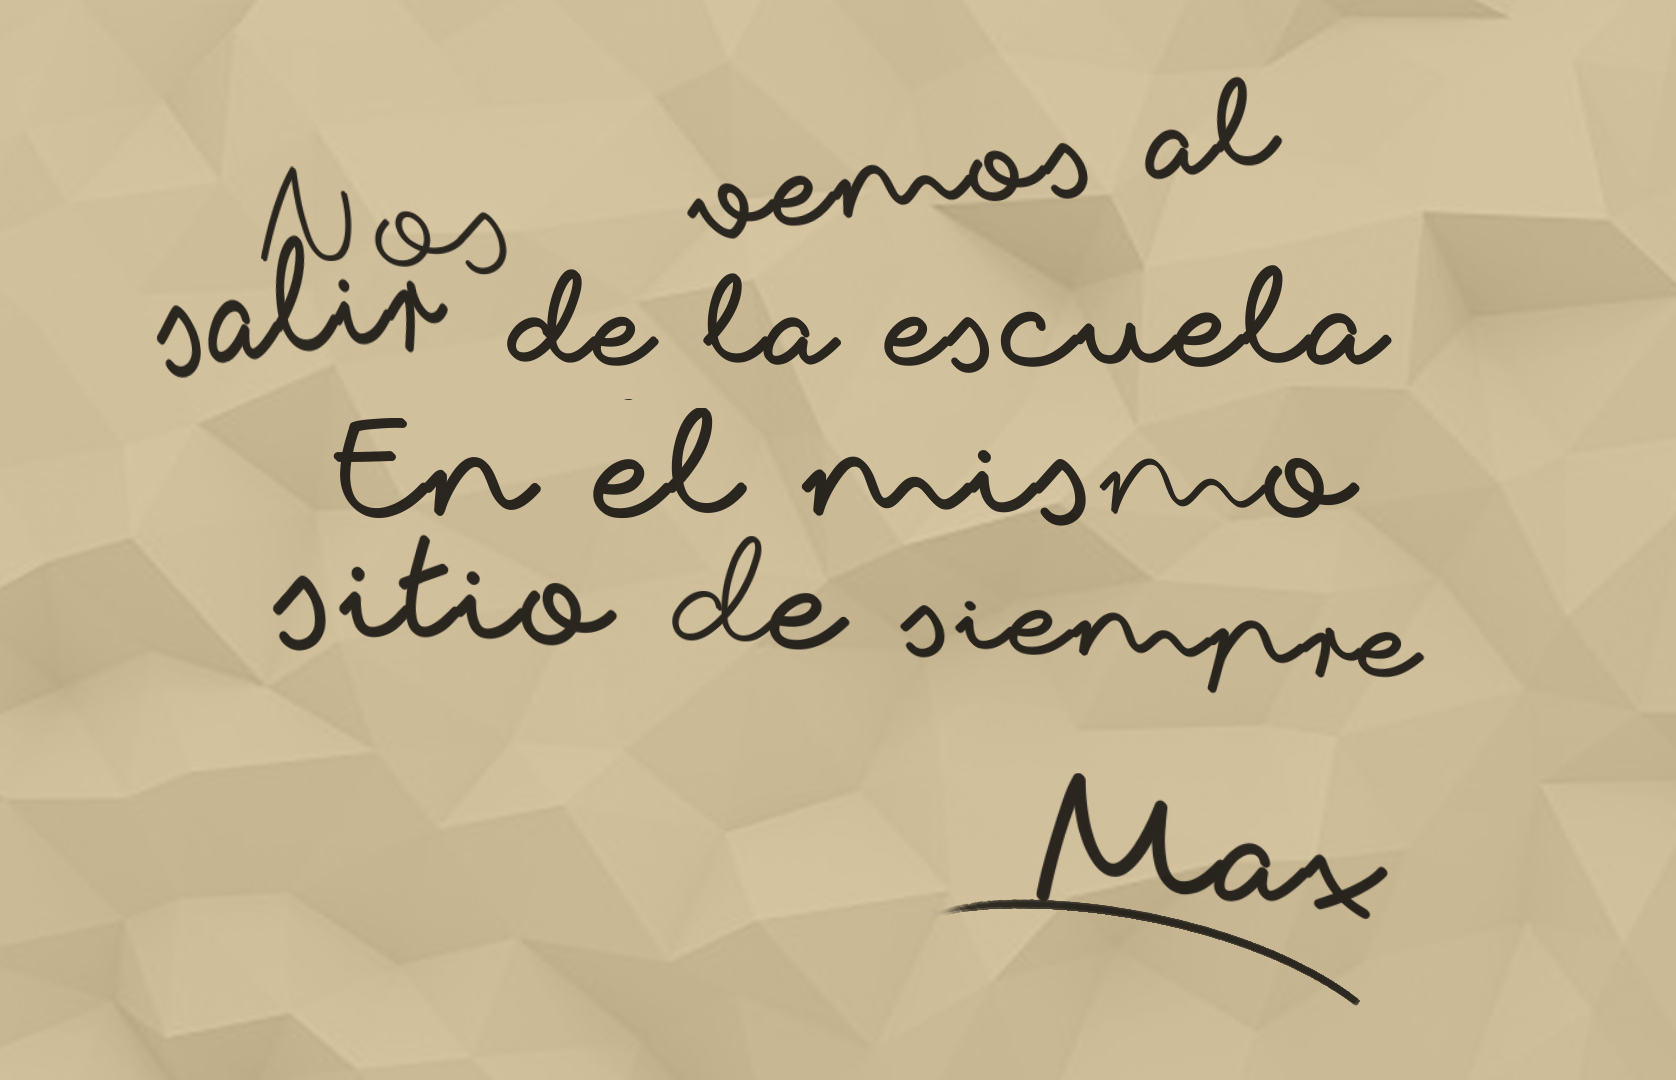 Nos vemos al
salir de la escuela
En el mismo
sitio de siempre
Max